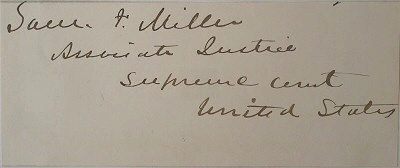 Sam. F. Miller
Associate Justice
Supreme Court
United States